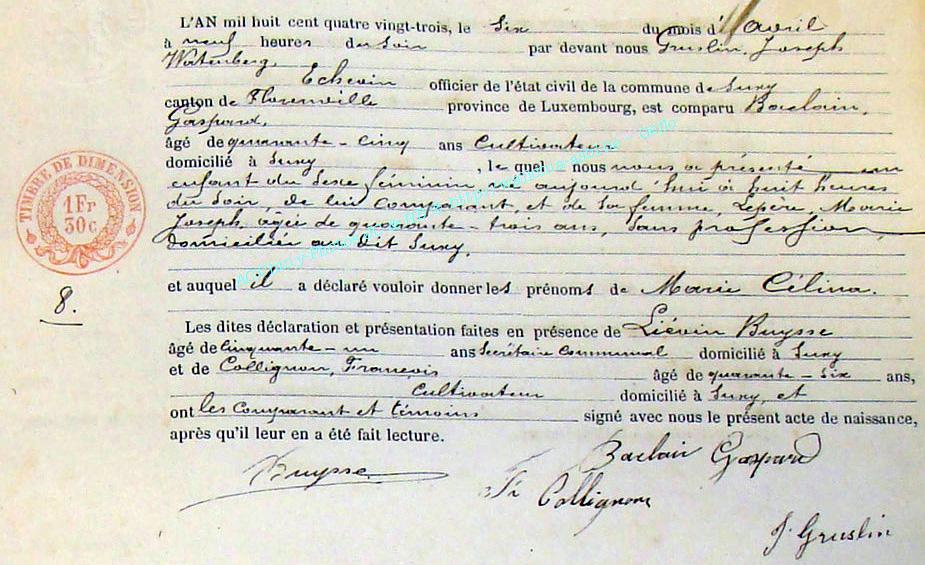 L'AN mil huit cent quatre vingt-trois, le Six du mois d'avril
à neuf heures du Soir par devant nous Gruslin, Joseph
Watenberg,
Echevin officier de l'état civil de la commune de Suxy
canton de Florenville province de Luxembourg, est comparu Baclain,
Gaspard,
âgé de quarante-cinq ans Cultivateur
domicilié à Suxy, le quel nous nous a présenté un
enfant du Sexe féminin, né aujourd'hui à huit heures
du Soir, de lui comparant, et de Sa femme, Lepère, Marie
Joseph, âgée de quarante-trois ans, Sans profession,
domiciliée au dit Suxy,
et auquel il a déclaré vouloir donner les prénoms de Marie Célina.
Les dites déclaration et présentation faites en présence de Liévin Buysse
âgé de Cinquante-un ans Secrétaire Communal domicilié à Suxy
et de Collignon, François âgé de quarante-Six ans,
Cultivateur domicilié à Suxy, et
ont les Comparant et témoins signé avec nous le présent acte de naissance,
après qu'il leur en a été fait lecture.
TIMBRE DE DIMENSION
1 Fr
30 c
8.
Buysse
Baclain Gaspard
Fr Collignon
J. Gruslin